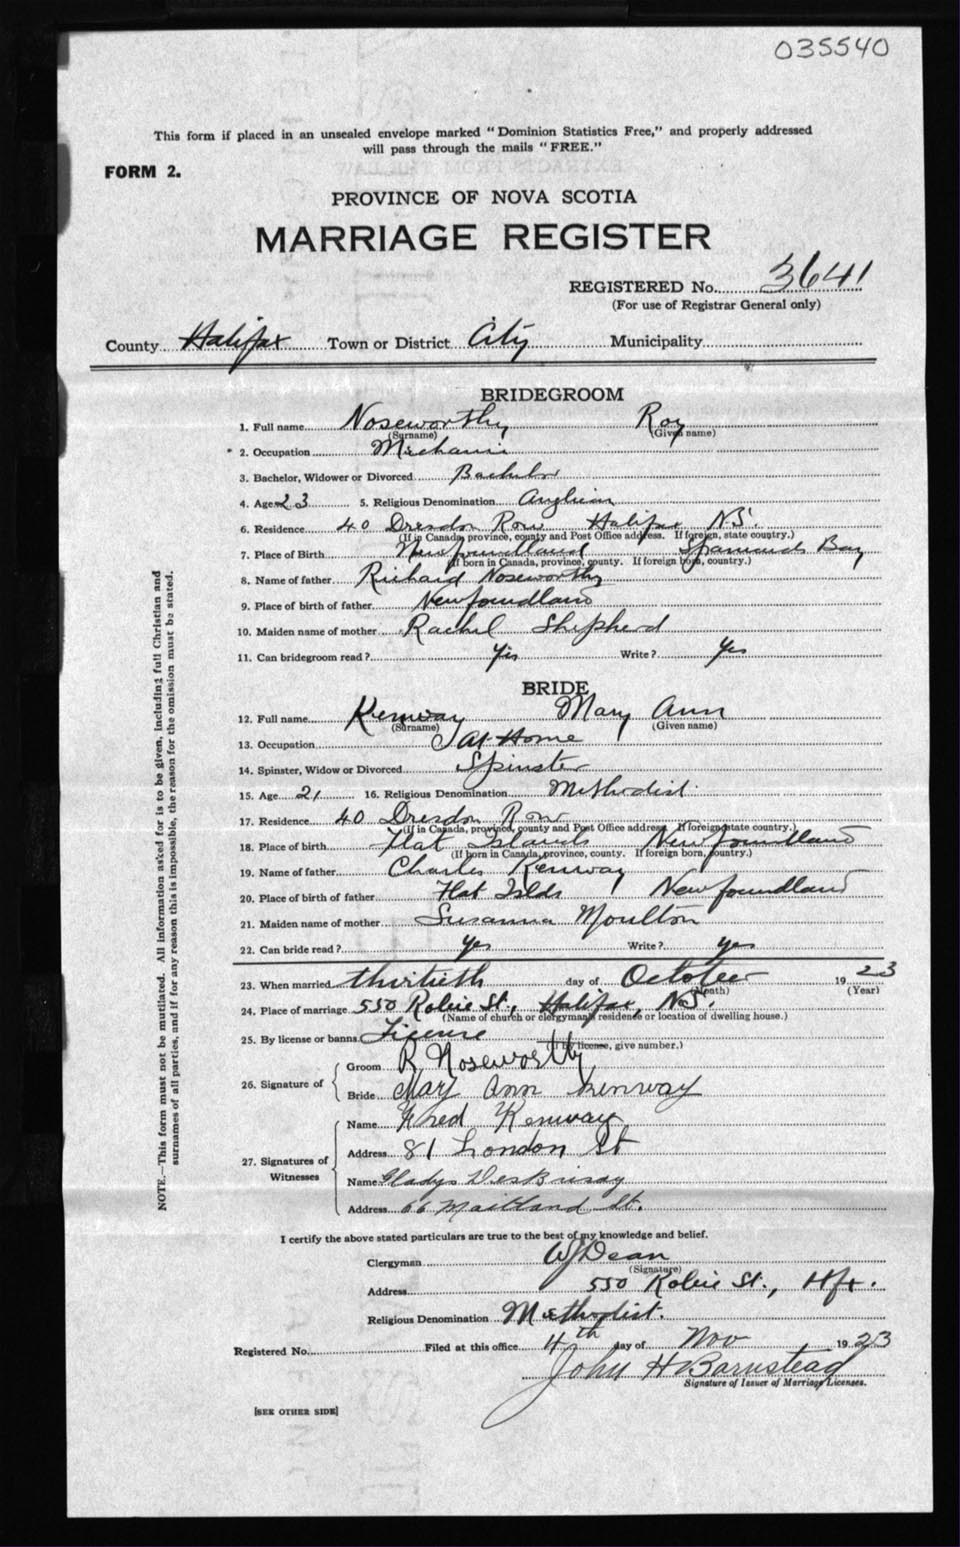 035540
This form if placed in an unsealed envelope marked "Dominion Statistics Free," and properly addressed
will pass through the mails "FREE."
FORM 2.
PROVINCE OF NOVA SCOTIA
MARRIAGE REGISTER
REGISTERED No. 3641
(For use of Registrar General only)
County Halifax Town or District City Municipality
BRIDEGROOM
1. Full name Noseworthy Roy
(Surname) (Given name)
2. Occupation Mechanic
3. Bachelor, Widower or Divorced Bachelor
4. Age 23 5. Religious Denomination Anglican
6. Residence 40 Dresdon Row Halifax N.S.
(If in Canada, province, county and Post Office address. If foreign, state country.)
7. Place of Birth Newfoundland Spaniards Bay
(If born in Canada, province, county. If foreign born, country.)
8. Name of father Richard Noseworthy
9. Place of birth of father Newfoundland
10. Maiden name of mother Rachel Shepherd
11. Can bridegroom read? Yes Write? Yes
BRIDE
12. Full name Kenway Mary Ann
(Surname) (Given name)
13. Occupation At Home
14. Spinster, Widow or Divorced Spinster
15. Age 21 16. Religious Denomination Methodist
17. Residence 40 Dresdon Row
(If in Canada, province, county and Post Office address. If foreign state country.)
18. Place of birth Flat Islands Newfoundland
(If born in Canada, province, county. If foreign born, country.)
19. Name of father Charles Kenway
20. Place of birth of father Flat Islds Newfoundland
21. Maiden name of mother Susanna Moulton
22. Can bride read? Yes Write? yes
23. When married thirtieth day of October 1923
(Month) (Year)
24. Place of marriage 550 Robie St., Halifax, N.S.
(Name of church or clergyman's residence or location of dwelling house.)
25. By license or banns License
(If by license, give number.)
26. Signature of
Groom R Noseworthy
Bride Mary Ann Kenway
27. Signatures of Witnesses
Name Fred Kenway
Address 81 London St
Name Gladys DesBrisay
Address 66 Maitland St.
I certify the above stated particulars are true to the best of my knowledge and belief.
Clergyman WJ Dean
(Signature)
Address 550 Robie St., Hfx.
Religious Denomination Methodist.
Registered No. Filed at this office 4th day of Nov 1923
John H Barnstead
Signature of Issuer of Marriage Licenses.
[SEE OTHER SIDE]
NOTE.—This form must not be mutilated. All information asked for is to be given, including full Christian and
surnames of all parties, and if for any reason this is impossible, the reason for the omission must be stated.